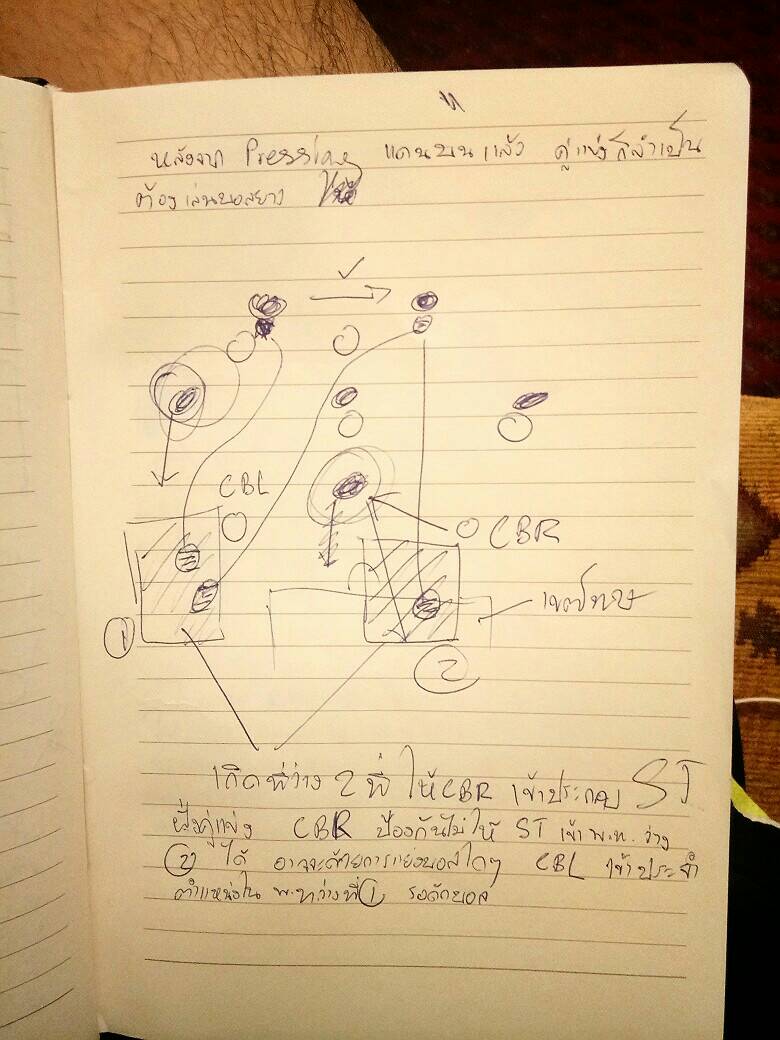 หลังจาก Pressing แดนบนแล้ว คู่แข่งก็จำเป็น
ต้องเล่นบอลยาว
CBL
CBR
เขตโทษ
1
2
เกิดที่ว่าง 2 ที่ ให้ CBR เข้าประกบ ST
ฝั่งคู่แข่ง CBR ป้องกันไม่ให้ ST เข้า พ.ท. ว่าง
② ได้ อาจจะด้วยการแย่งบอลใดๆ CBL เข้าประจำ
ตำแหน่งใน พ.ท.ว่างที่ ① รอดักบอล